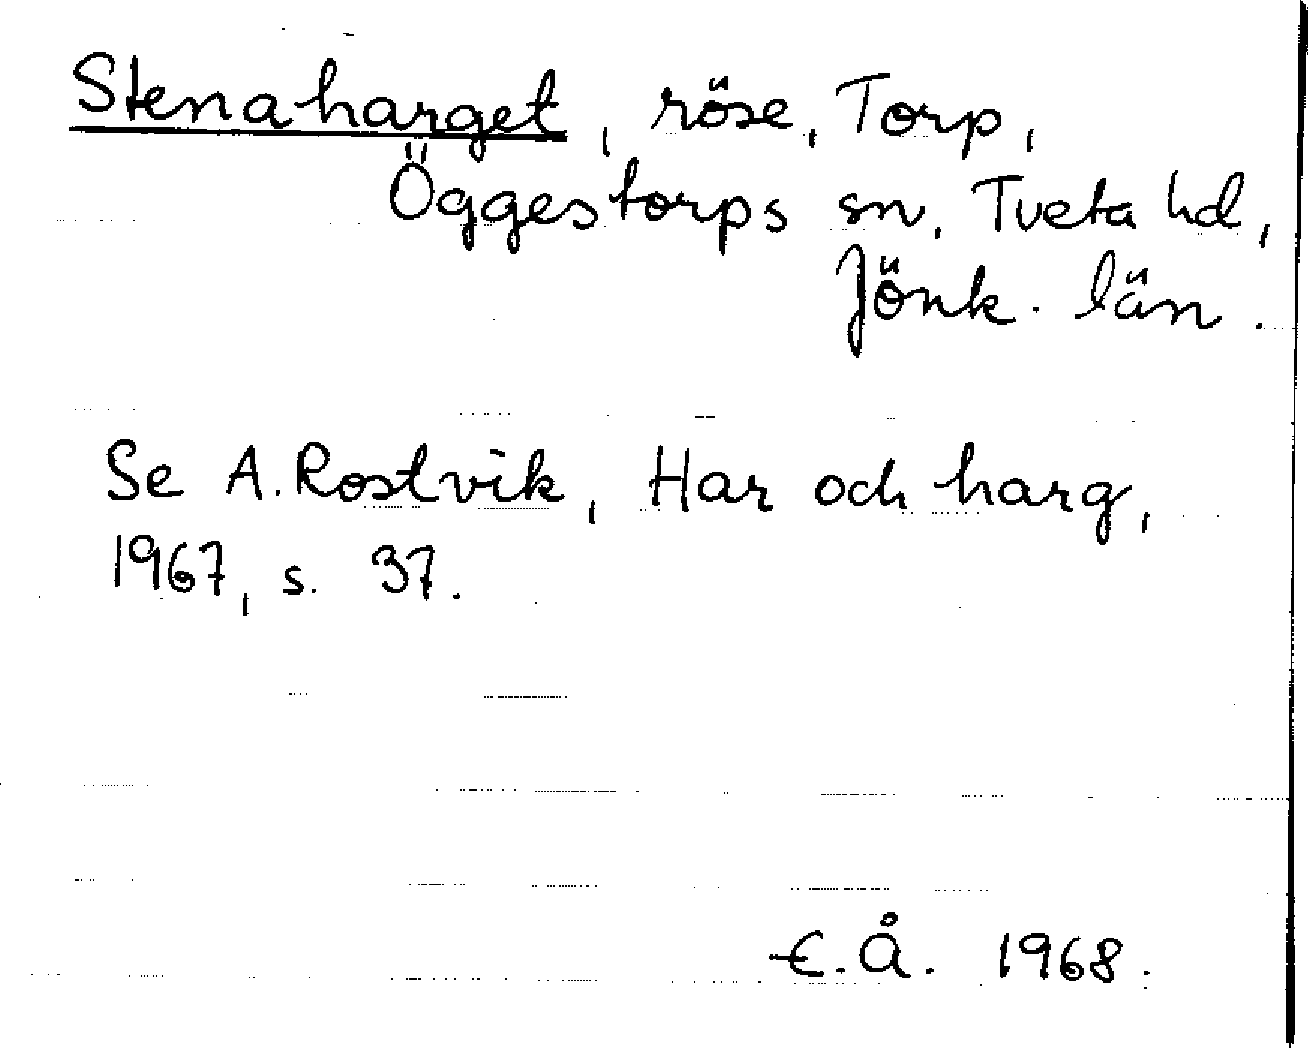 Stenaharget, röse, Torp,
Öggestorps sn, Tveta hd,
Jönk. län.
Se A. Rostvik, Har och harg,
1967, s. 37.
E.Å. 1968.